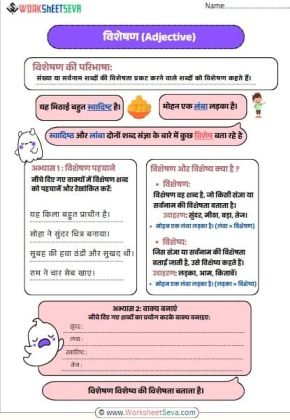 WORKSHEETSEVA
Name:
विशेषण (Adjective)
विशेषण की परिभाषा:
संख्या या सर्वनाम शब्दों की विशेषता प्रकट करने वाले शब्दों को विशेषण कहते हैं।
यह मिठाई बहुत स्वादिष्ट है।
मोहन एक लंबा लड़का है।
स्वादिष्ठ और लांबा दोनों शब्द संज्ञा के बारे में कुछ विशेष बता रहे हे
अभ्यास 1 : विशेषण पहचाने
नीचे दिए गए वाक्यों में विशेषण शब्द
को पहचानें और रेखांकित करें:
यह किला बहुत प्राचीन है।
सोहा ने सुंदर चित्र बनाया।
सुबह की हवा ठंडी और सुखद थी।
राम ने चार सेब खाए।
विशेषण और विशेष्य क्या है ?
• विशेषण:
विशेषण वह शब्द है, जो किसी संज्ञा या
सर्वनाम की विशेषता बताता है।
उदाहरण: सुंदर, मीठा, बड़ा, तेज।
• मोहन एक लंबा लड़का है। (लंबा = विशेषण)
• विशेष्य:
जिस संज्ञा या सर्वनाम की विशेषता
बताई जाती है, उसे विशेष्य कहते हैं।
उदाहरण: लड़का, आम, किताबें।
मोहन एक लंबा लड़का है। (लड़का = विशेष्य)
अभ्यास 2: वाक्य बनाएं
नीचे दिए गए शब्दों का प्रयोग करके वाक्य बनाइए:
सुंदर :
लंबा :
स्वादिष्ट :
तेज :
विशेषण विशेष्य की विशेषता बताता है।
www.WorksheetSeva.com